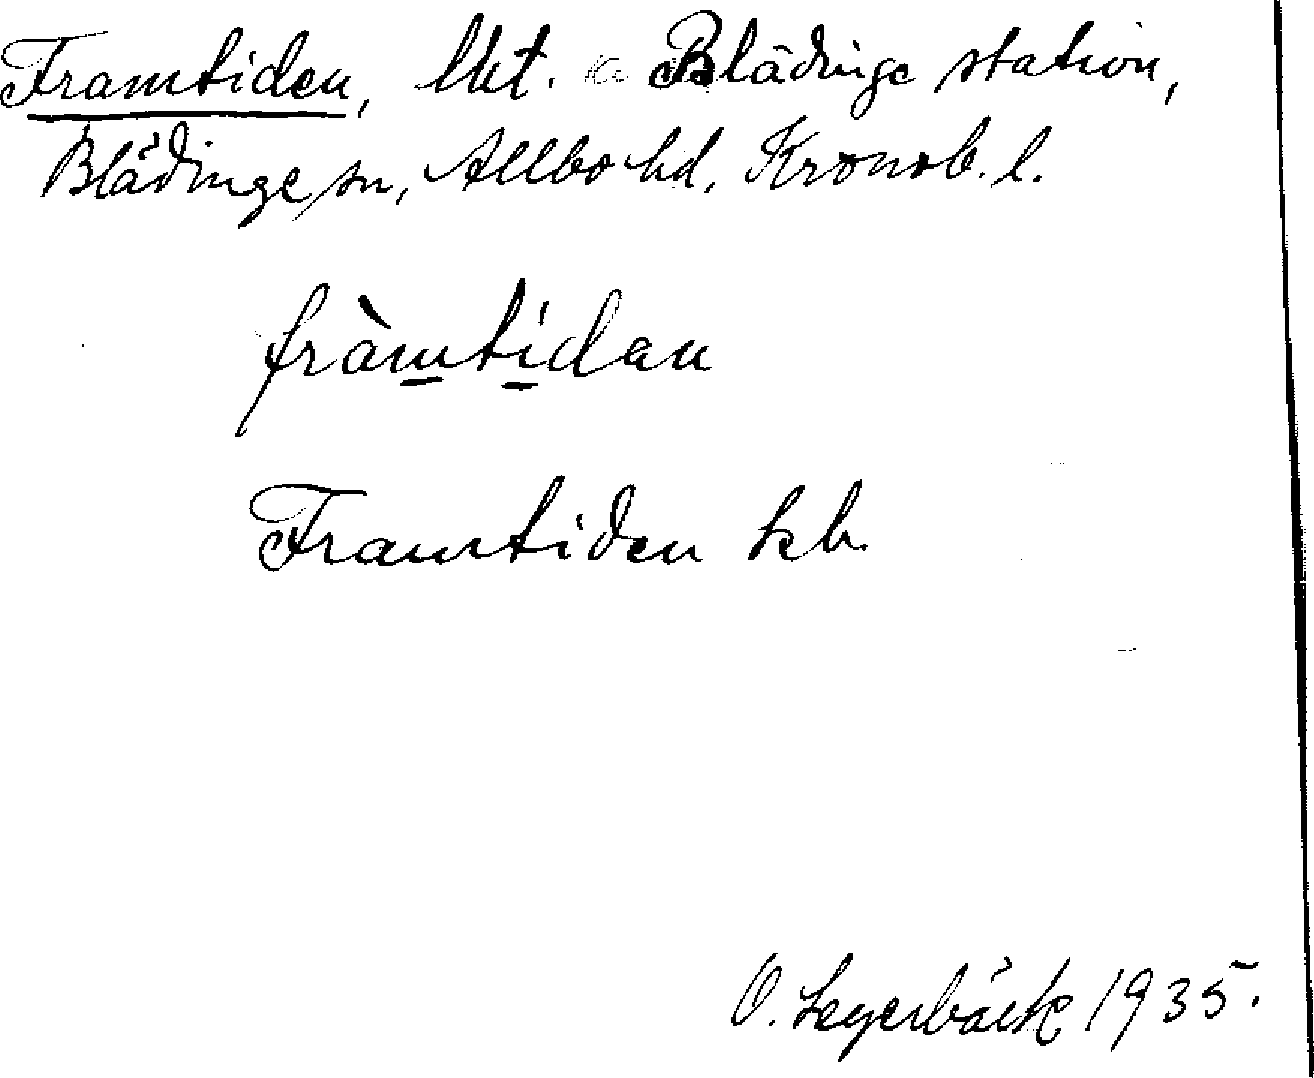 Framtiden, lht. a Blädinge station,
Blädinge sn, Allbo hd, Kronob. l.
fràmtidan
Framtiden kb.
O. Legerbäck 1935.